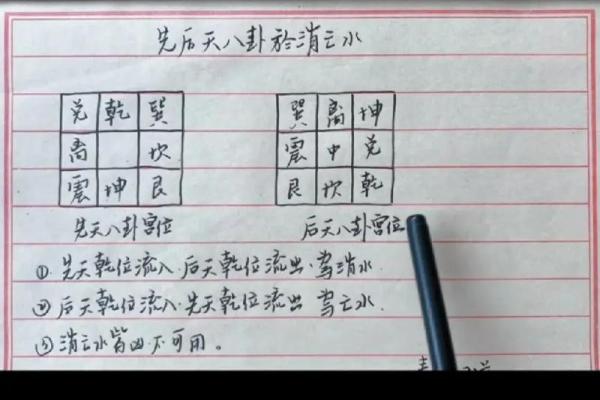 先后天八卦於消亡水
兑 乾 巽
离 坎
震 坤 艮
先天八卦宫位
巽 离 坤
震 中 兑
艮 坎 乾
后天八卦宫位
①先天乾位流入.后天乾位流出.为消水.
②后天乾位流入.先天乾位流出 为亡水.
③消亡水皆凶不可用。